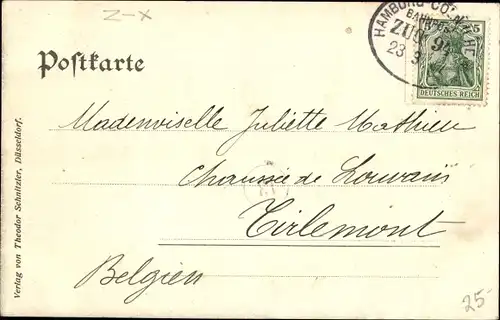 Z-X
HAMBURG-CÖLN
BAHNPOST
ZUG 9
23 9
5
DEUTSCHES REICH
Postkarte
Mademoiselle Juliette Mathieu
Chaussée de Louvain
Tirlemont
Belgien
25-
Verlag von Theodor Schnitzler, Düsseldorf.